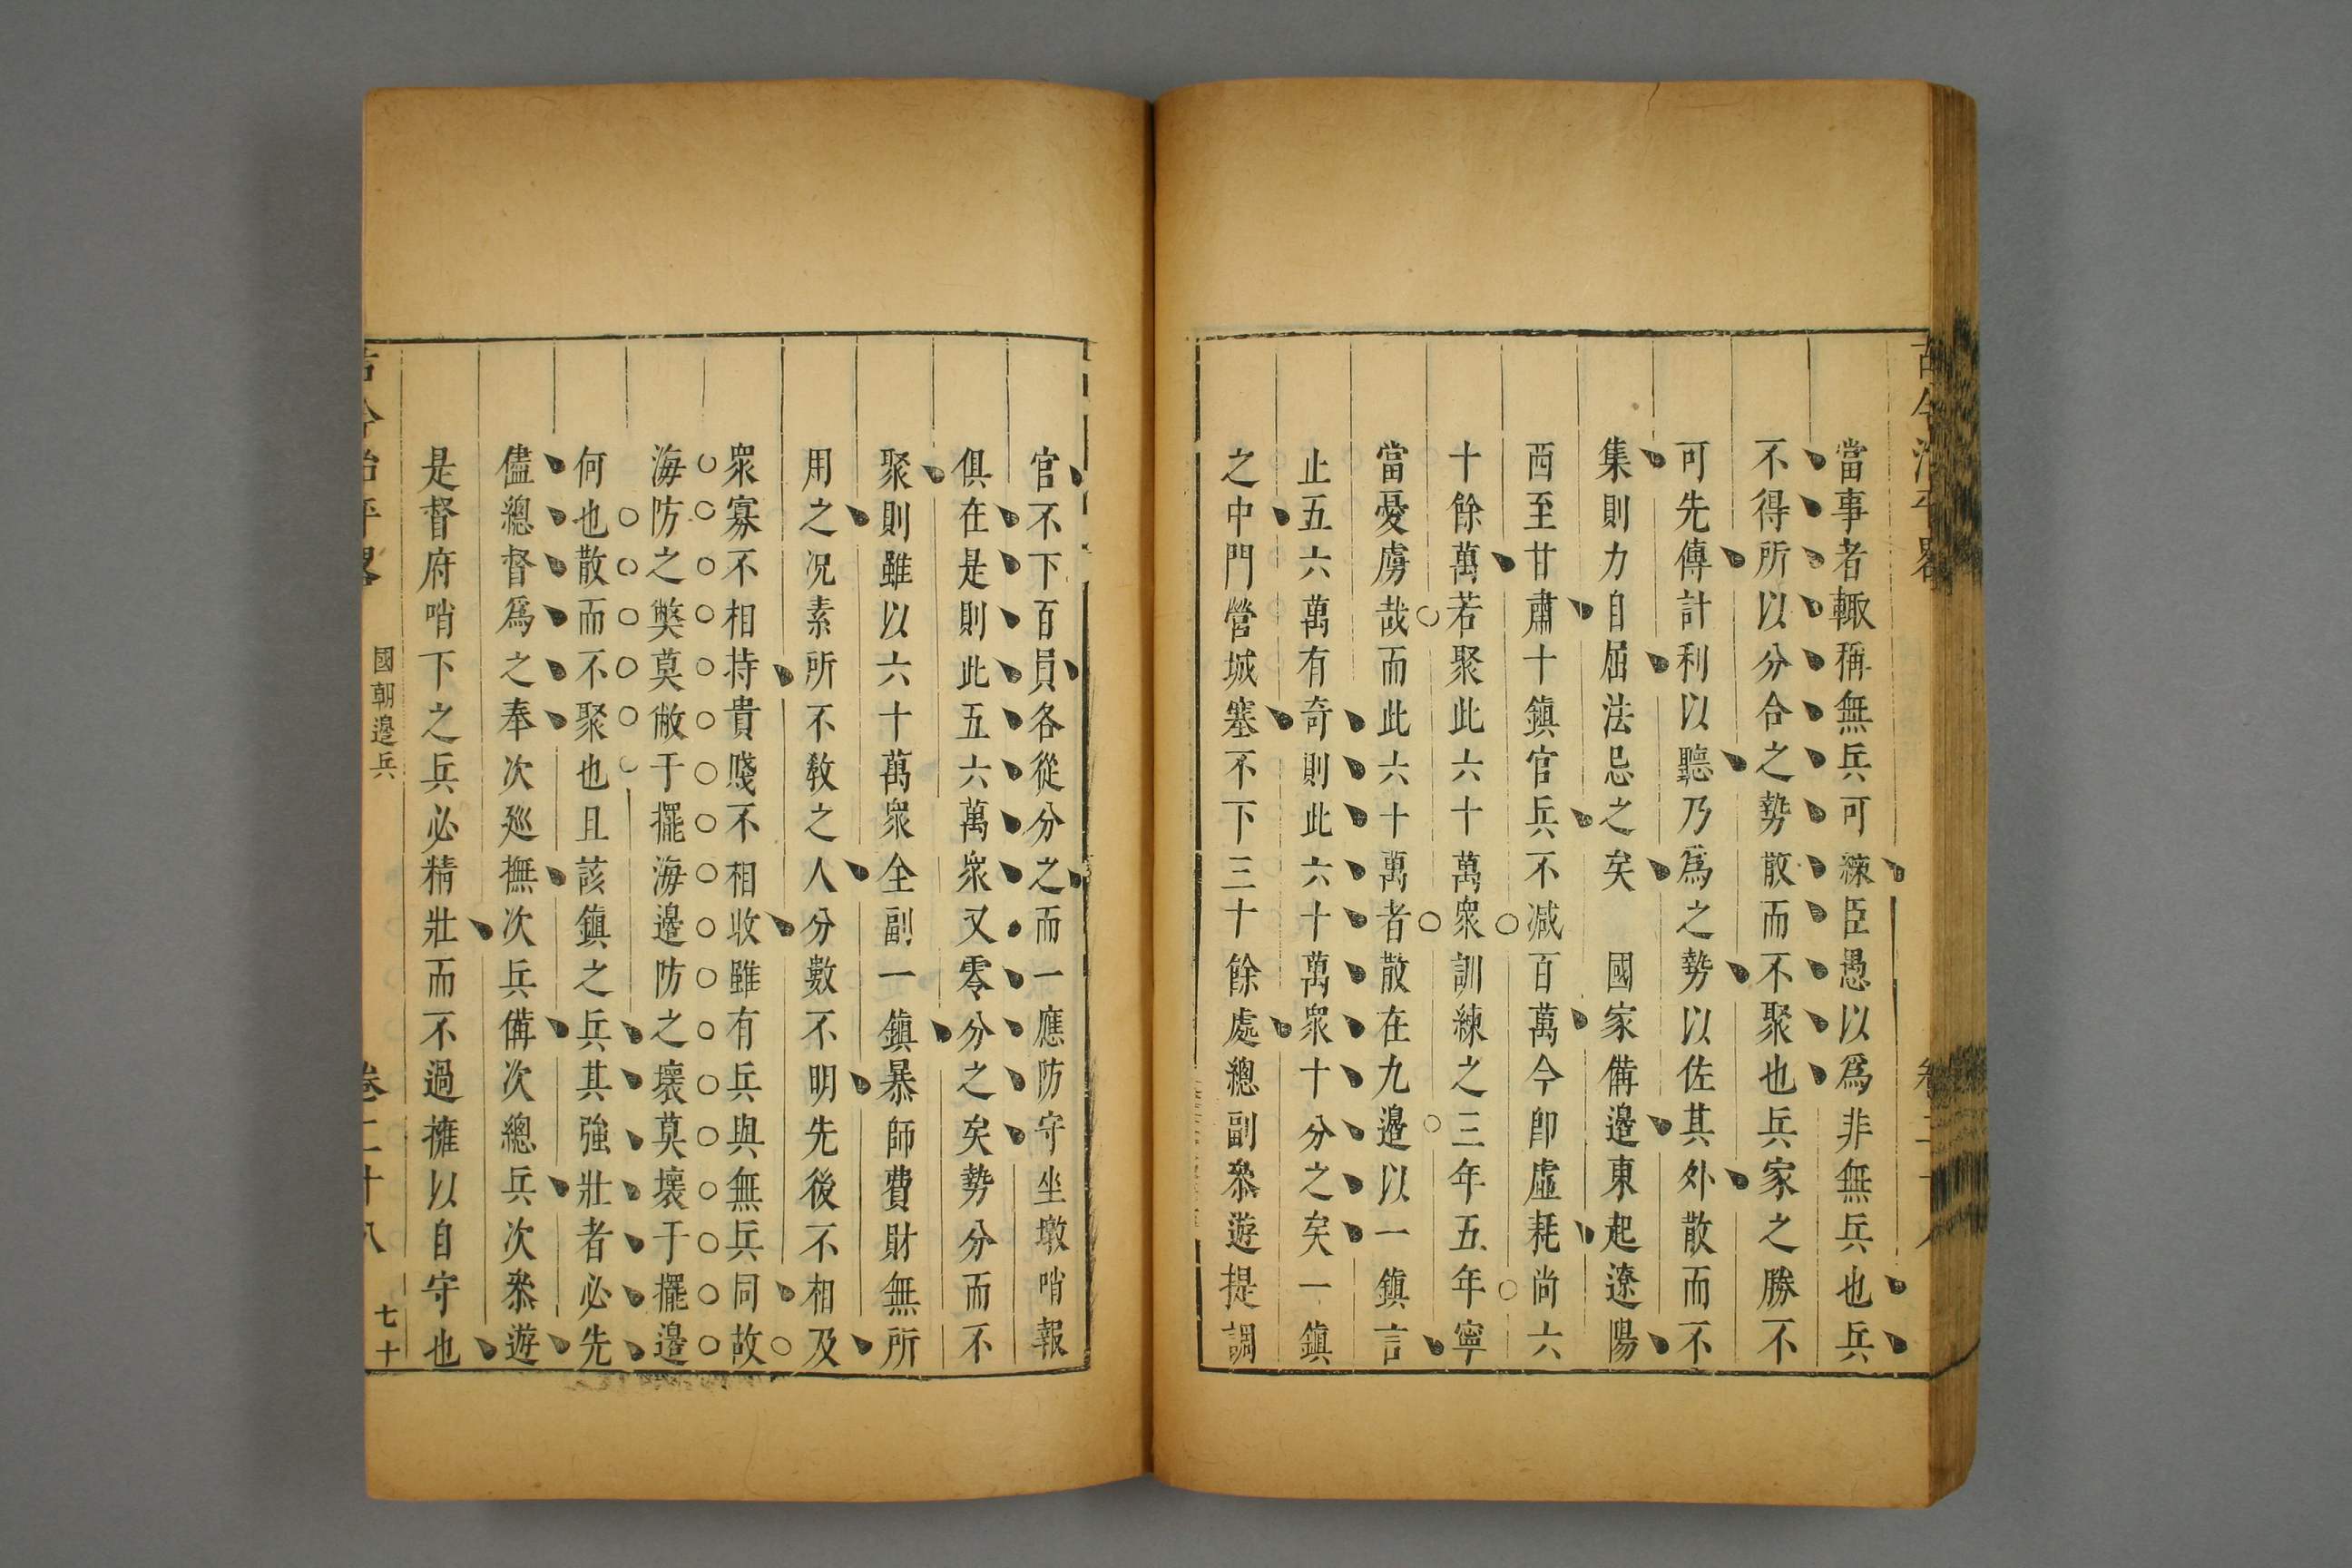 當事者輙稱無兵可練臣愚以爲非無兵也兵
不得所以分合之勢散而不聚也兵家之勝不
可先傳計利以聽乃爲之勢以佐其外散而不
集則力自屈法忌之矣　國家備邊東起遼陽
西至甘肅十鎮官兵不减百萬今卽虛耗尚六
十餘萬若聚此六十萬衆訓練之三年五年寧
當憂虜哉而此六十萬者散在九邊以一鎮言
止五六萬有奇則此六十萬衆十分之矣一鎮
之中門營城塞不下三十餘處總副叅遊提調
官不下百員各從分之而一應防守坐墩哨報
俱在是則此五六萬衆又零分之矣勢分而不
聚則雖以六十萬衆全副一鎮暴師費財無所
用之况素所不教之人分數不明先後不相及
衆寡不相持貴賤不相收雖有兵與無兵同故
海防之獘莫敝于擺海邊防之壞莫壞于擺邊
何也散而不聚也且該鎮之兵其強壯者必先
儘總督爲之奉次廵撫次兵備次總兵次叅遊
是督府哨下之兵必精壯而不過擁以自守也
古今治平畧
國朝邊兵
卷二十八
七十